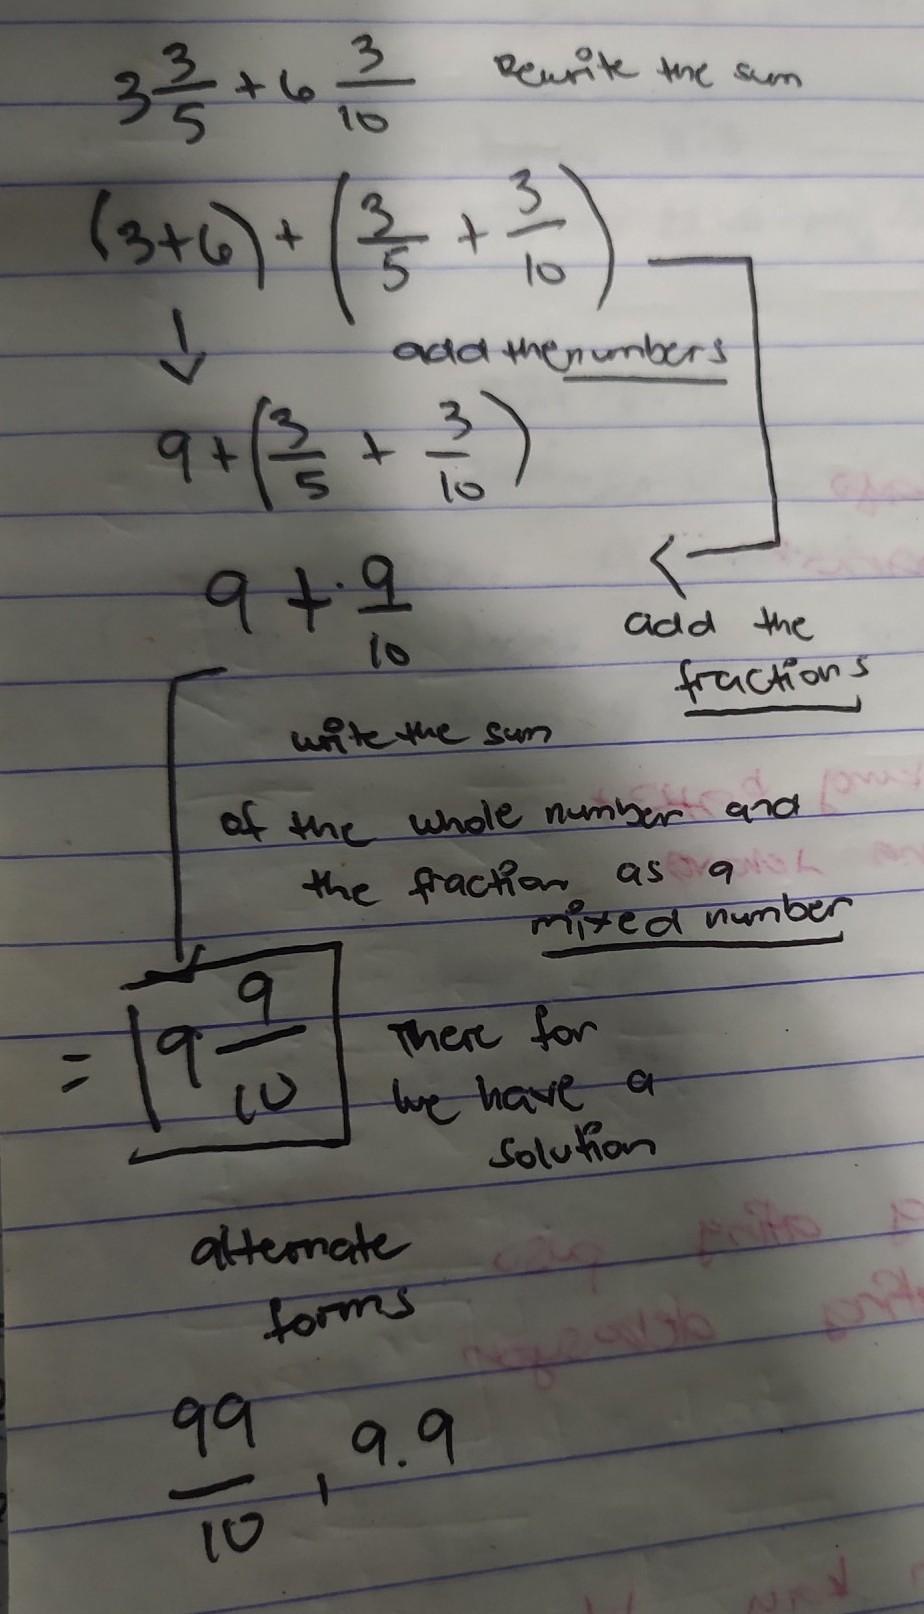 3 3/5 + 6 3/10 Rewrite the sum
(3+6) + (3/5 + 3/10)
add the numbers
9 + (3/5 + 3/10)
9 + 9/10
add the
fractions
write the sum
of the whole number and
the fraction as a
mixed number
= 9 9/10
There for
we have a
solution
alternate
forms
99/10 , 9.9